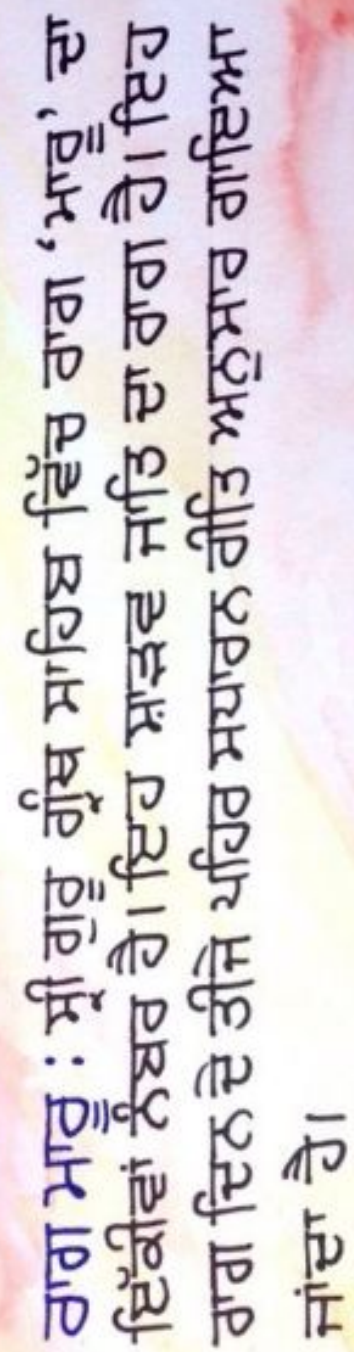 ਰਾਗ ਆਸਾ : ਸ੍ਰੀ ਗੁਰੂ ਗ੍ਰੰਥ ਸਾਹਿਬ ਵਿੱਚ ਰਾਗ, ਆਸਾ, ਦਾ
ਇਕੀਵਾਂ ਨੰਬਰ ਹੈ। ਇਹ ਸ਼ਾੜਵ ਜਾਤਿ ਦਾ ਰਾਗ ਹੈ। ਇਹ
ਰਾਗ ਦਿਨ ਦੇ ਤੀਜੇ ਪਹਿਰ ਸਧਾਰਨ ਰੀਤਿ ਅਨੁਸਾਰ ਗਾਇਆ
ਜਾਂਦਾ ਹੈ।